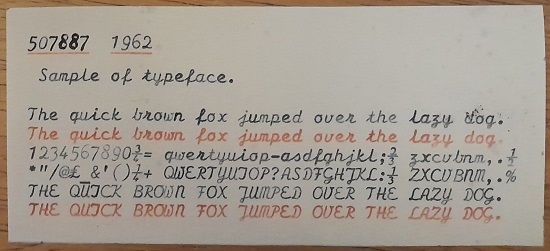 507887 1962
Sample of typeface.
The quick brown fox jumped over the lazy dog.
The quick brown fox jumped over the lazy dog.
1234567890¾= qwertyuiop-asdfghjkl;⅔ zxcvbnm,.½
*"/@£ &'()¼+ QWERTYUIOP?ASDFGHJKL:⅓ ZXCVBNM,.%
THE QUICK BROWN FOX JUMPED OVER THE LAZY DOG.
THE QUICK BROWN FOX JUMPED OVER THE LAZY DOG.